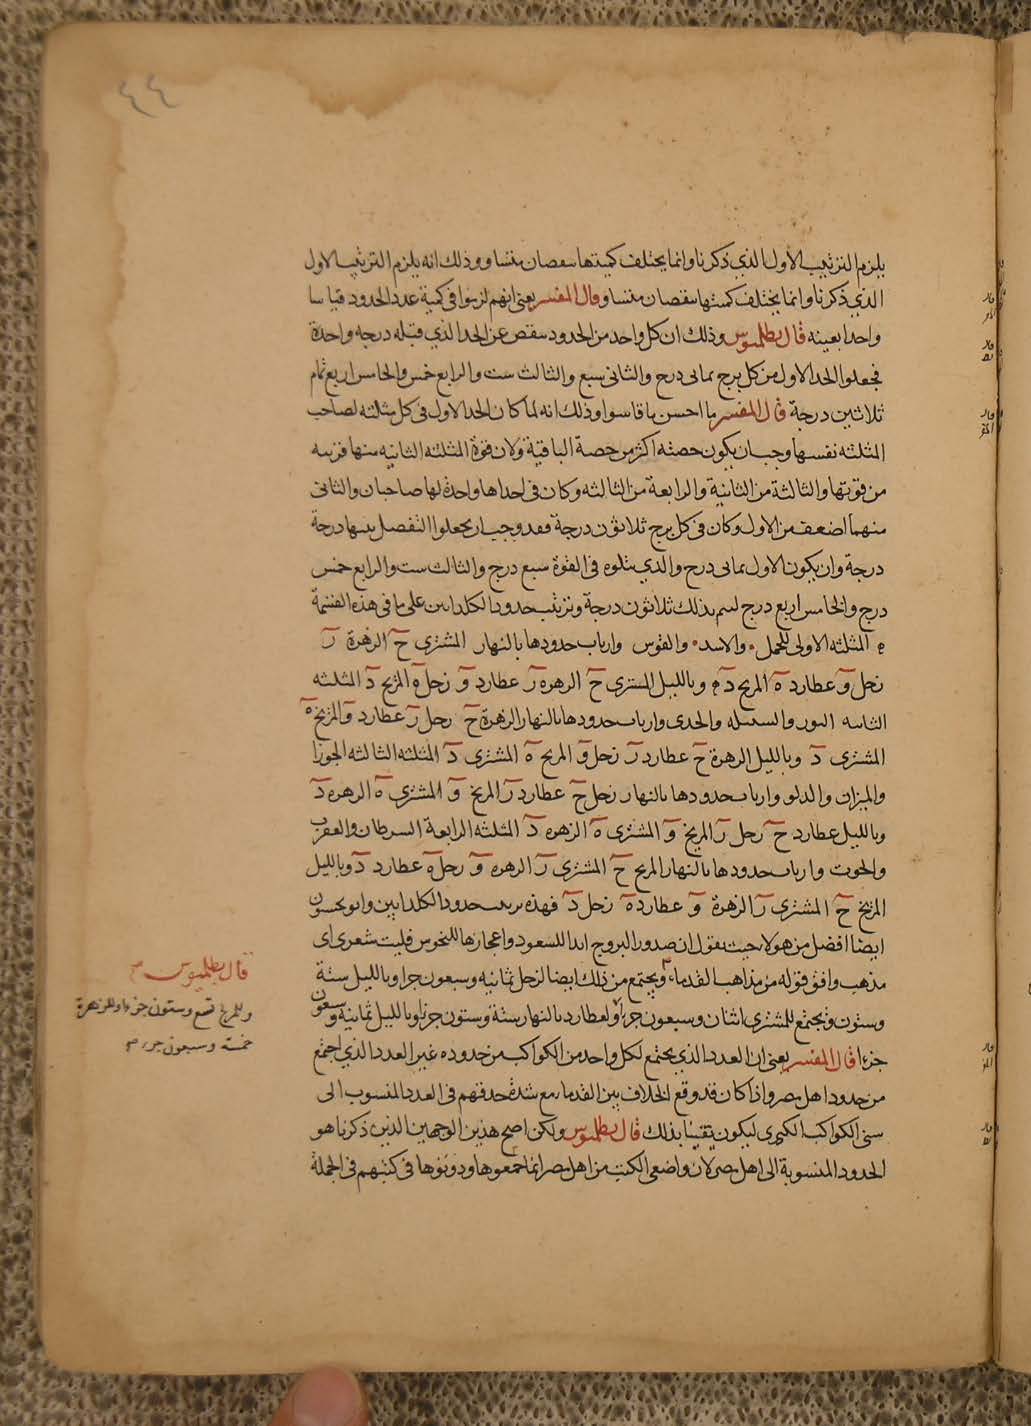 ٤٤
يلزم الترتيب الاول الذي ذكرنا وانما يختلف كميتها بنقصان متساو وذلك انه يلزم الترتيب الاول
الذي ذكرنا وانما يختلف كميتها بنقصان متساو قال المفسر يعني انهم لزموا في كمية عدد الحدود قياسا
واحدا بعينه قال بطلميوس وذلك ان كل واحد من الحدود ينقص عن الحد الذي قبله درجه واحدة
فجعلوا الحد الاول من كل برج ثماني درج والثاني سبع والثالث ست والرابع خمس والخامس اربع تمام
ثلاثين درجة قال المفسر ما احسن ما قاسوا وذلك انه لما كان الحد الاول في كل مثلثه لصاحب
المثلثه نفسها وجب ان يكون حصته اكثر من حصة الباقية ولان قوة المثلثه الثانيه منها قريبه
من قوتها والثالثة من الثانية والرابعة من الثالثه وكان في احداها واحدة لها صاحبان والثاني
منهما اضعف من الاول وكان في كل برج ثلاثون درجة فقد وجب ان يجعلوا التفصل بينها درجة
درجة وان يكون الاول ثماني درج والذي يتلوه في القوة سبع درج والثالث ست والرابع خمس
درج والخامس اربع درج ليتم بذلك ثلاثون درجة وترتيب حدود الكلدانين على ما في هذه القسمة
ه المثلثه الاولى للحمل والاسد والقوس وارباب حدودها بالنهار المشتري ح الزهرة ز
زحل و عطارد ه المريخ د وبالليل المشتري ح الزهره ز عطارد و زحل ه المريخ د المثلثه
الثانيه الثور والسنبله والجدي وارباب حدودها بالنهار الزهرة ح زحل ز عطارد و المريخ ه
المشتري د وبالليل الزهرة ح عطارد ز زحل و المريخ ه المشتري د المثلثه الثالثه الجوزا
والميزان والدلو وارباب حدودها بالنهار زحل ح عطارد ز المريخ و المشتري ه الزهره د
وبالليل عطارد ح زحل ز المريخ و المشتري ه الزهره د المثلثه الرابعة السرطان والعقرب
والحوت وارباب حدودها بالنهار المريخ ح المشتري ز الزهره و زحل ه عطارد د وبالليل
المريخ ح المشتري ز الزهرة و عطارد ه زحل د فهذه ترتيب حدود الكلدانين
ايضا افضل من هولاء حيث يقول ان صدور البروج ابدا للسعود واعجازها للنحوس فليت شعري اي
مذهب وافق قوله من مذاهب القدماء ويجتمع من ذلك ايضا لزحل ثمانيه وسبعون جزا وبالليل ستة
وستون ويجتمع للمشتري اثنان وسبعون جزءا ولعطارد بالنهار ستة وستون جزءا وبالليل ثمانية وسبعون
جزءا قال المفسر يعني ان العدد الذي يجتمع لكل واحد من الكواكب من حدوده غير العدد الذي اجتمع
من حدود اهل مصر واذا كان قد وقع الخلاف بين القدماء مع شدة حذقهم في العدد المنسوب الى
سني الكواكب الكبرى ليكون تقينا بذلك قال بطلميوس ولكن اصح هذين الوجهين الذين ذكرنا هو
الحدود المنسوبة الى اهل مصر لان واضعي الكتب من اهل مصر انما جمعوها ودونوها في كتبهم في الجملة
قال بطلميوس
وللمريخ تسع وستون جزءا وللزهرة
خمسة وسبعون جزء صح